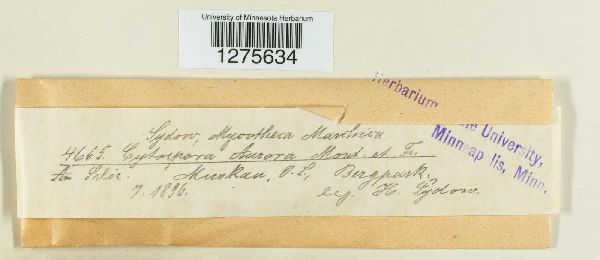 University of Minnesota Herbarium
1275634
Herbarium
University,
Minneap lis, Minn.
Sydow, Mycotheca Marchica
4665. Cytospora Aurora Mont. et Fr.
An Salix. Muskau, O. L., Bergpark,
7. 1896. leg. H. Sydow.